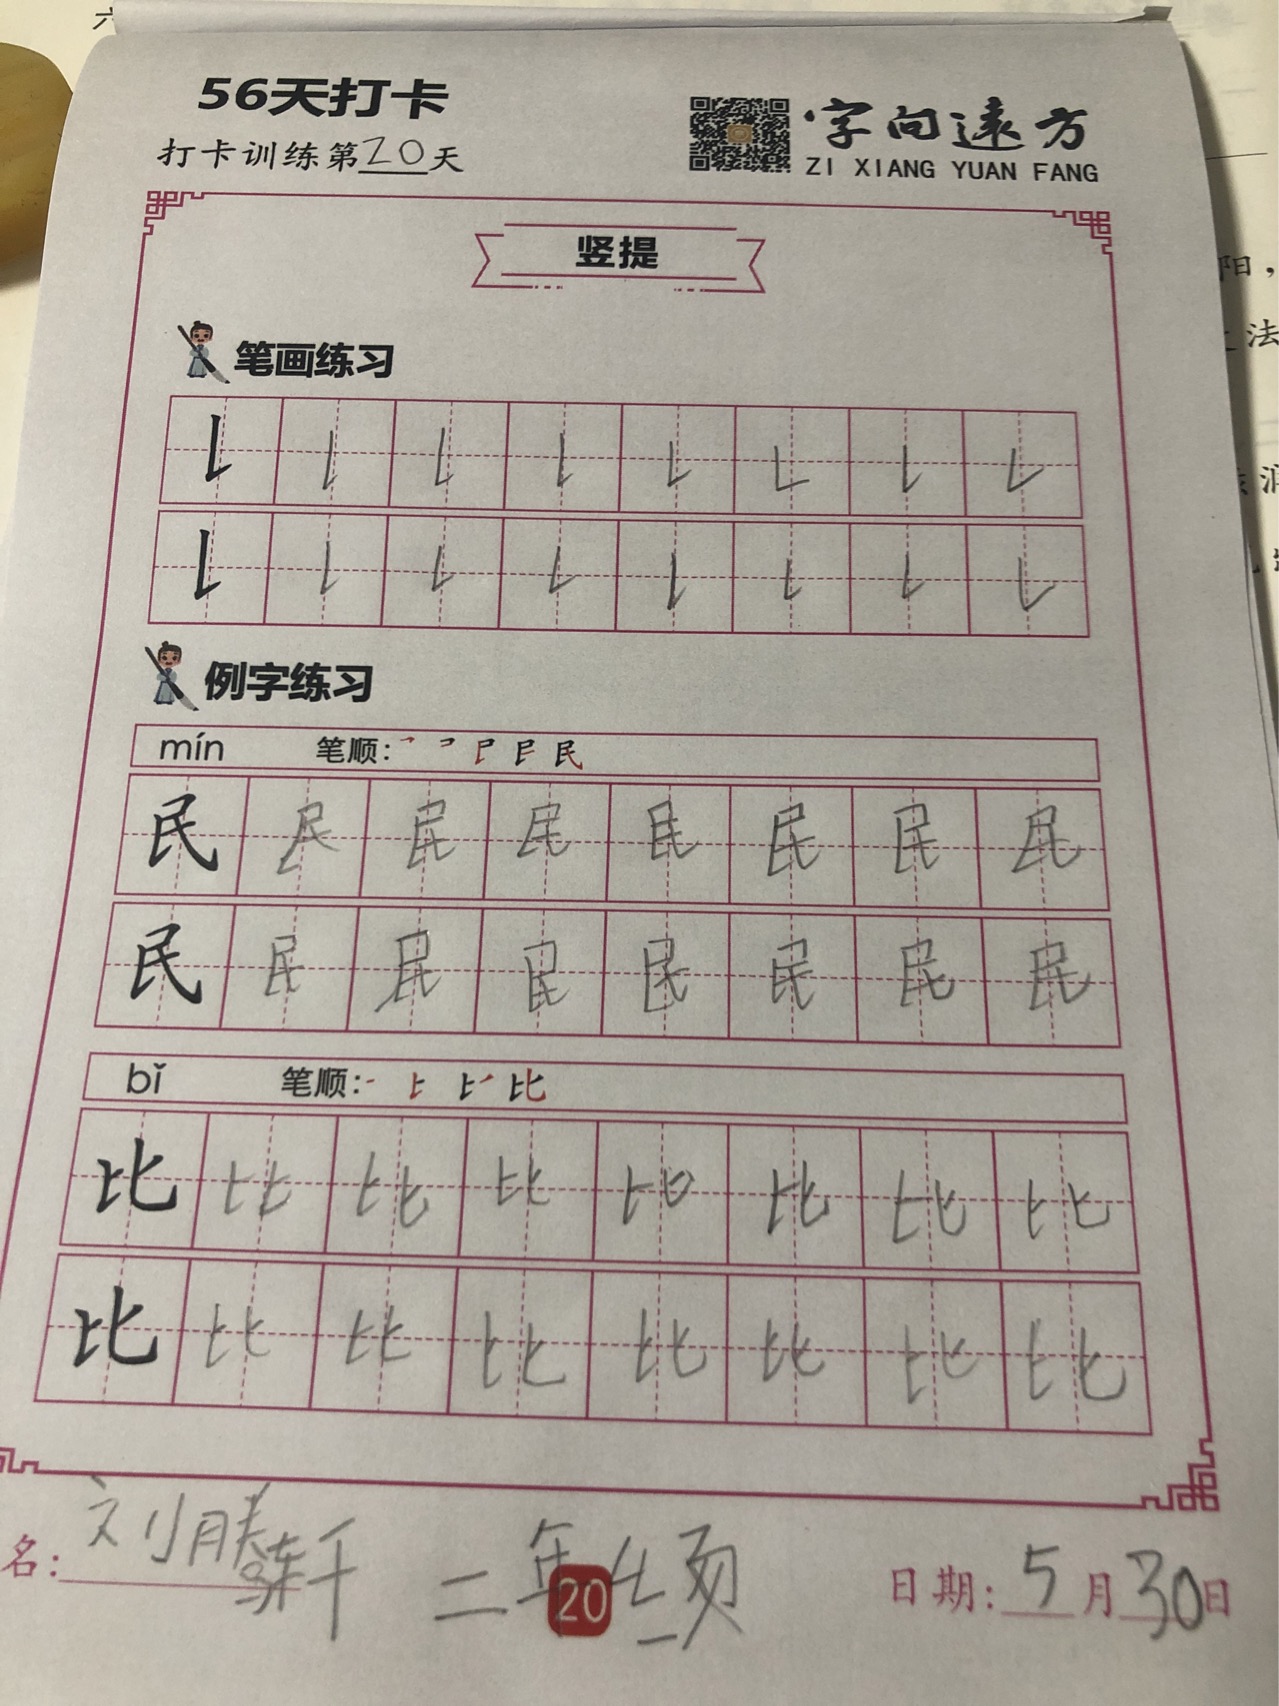 56天打卡
打卡训练第20天
字向遠方
ZI XIANG YUAN FANG
竖提
笔画练习
例字练习
mín 笔顺:
民 民 民 民 民 民 民 民
民 民 民 民 民 民 民 民
bǐ 笔顺:
比 比 比 比 比 比 比 比
比 比 比 比 比 比 比 比
名: 刘腾轩 二年 20 日期: 5月30日
阳，
法